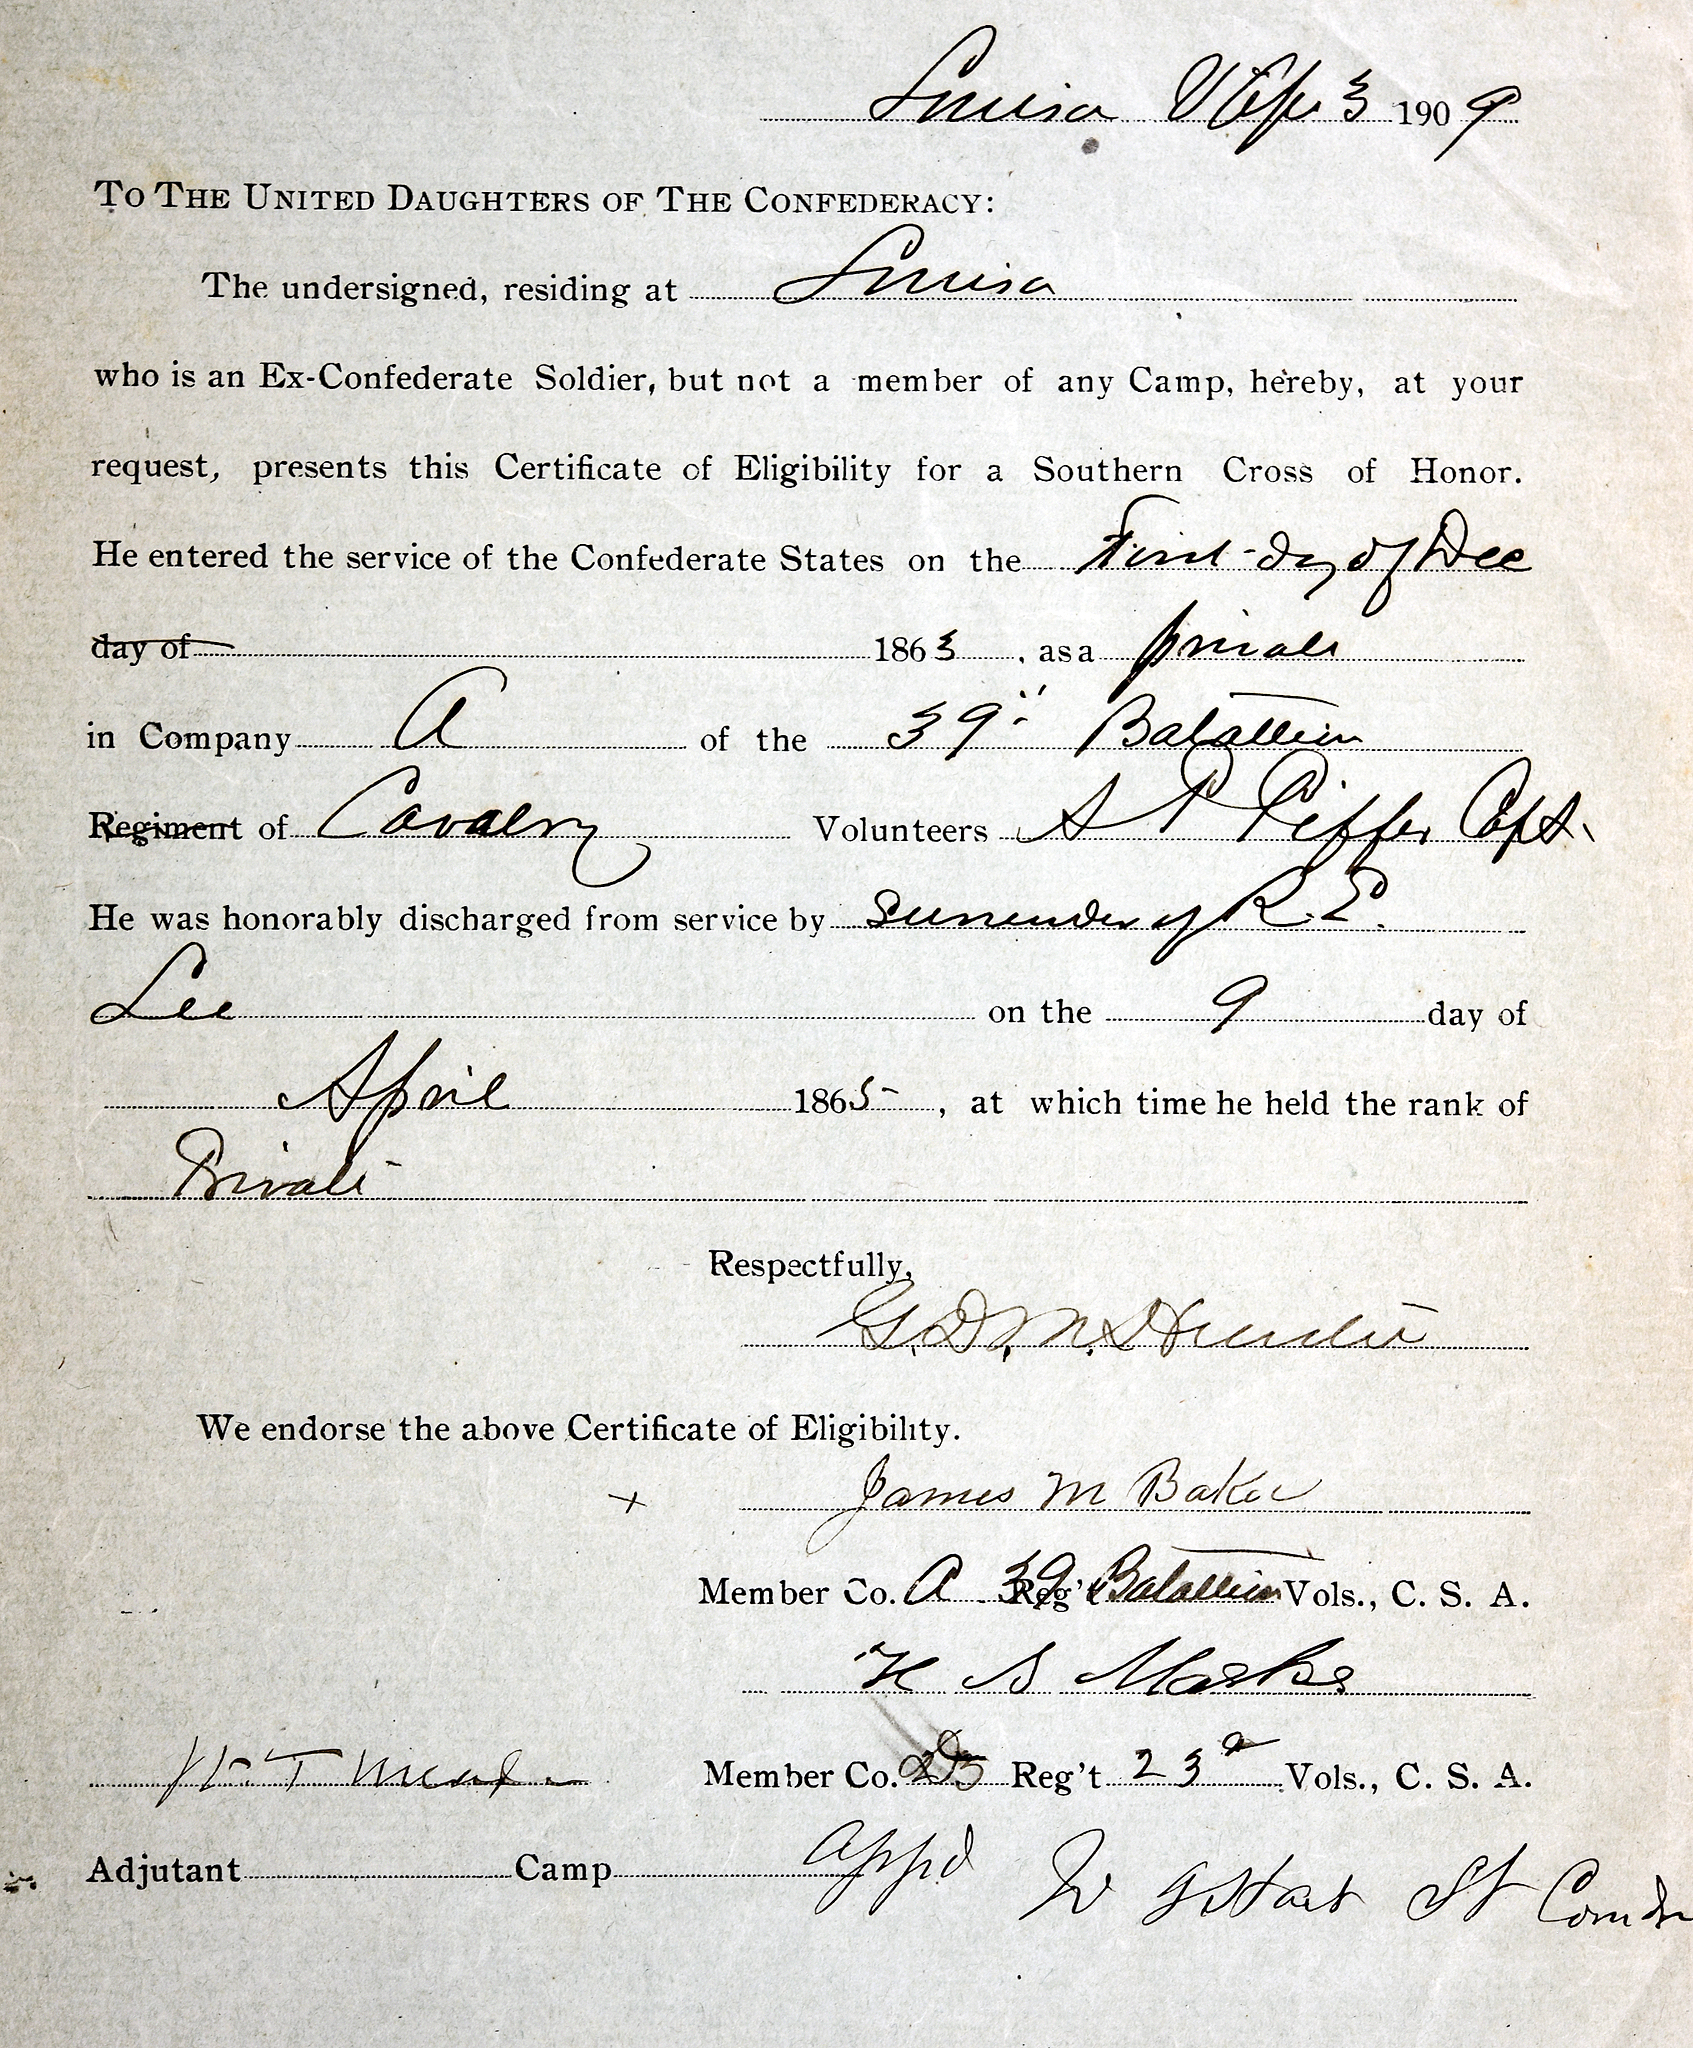 Louisa Va Apr 3 1909
TO THE UNITED DAUGHTERS OF THE CONFEDERACY:
The undersigned, residing at Louisa
who is an Ex-Confederate Soldier, but not a member of any Camp, hereby, at your
request, presents this Certificate of Eligibility for a Southern Cross of Honor.
He entered the service of the Confederate States on the First day of Dec
day of 1863, as a private
in Company A of the 39" Batallion
Regiment of Cavalry Volunteers A P Piffer Capt.
He was honorably discharged from service by surrender of R. E.
Lee on the 9 day of
April 1865, at which time he held the rank of
Private
Respectfully,
G. D. M. Hunter
We endorse the above Certificate of Eligibility.
x James M Baker
Member Co. A 39 Reg't Batallion Vols., C. S. A.
H S Marks
Member Co. D Reg't 23d Vols., C. S. A.
Adjutant Camp appd